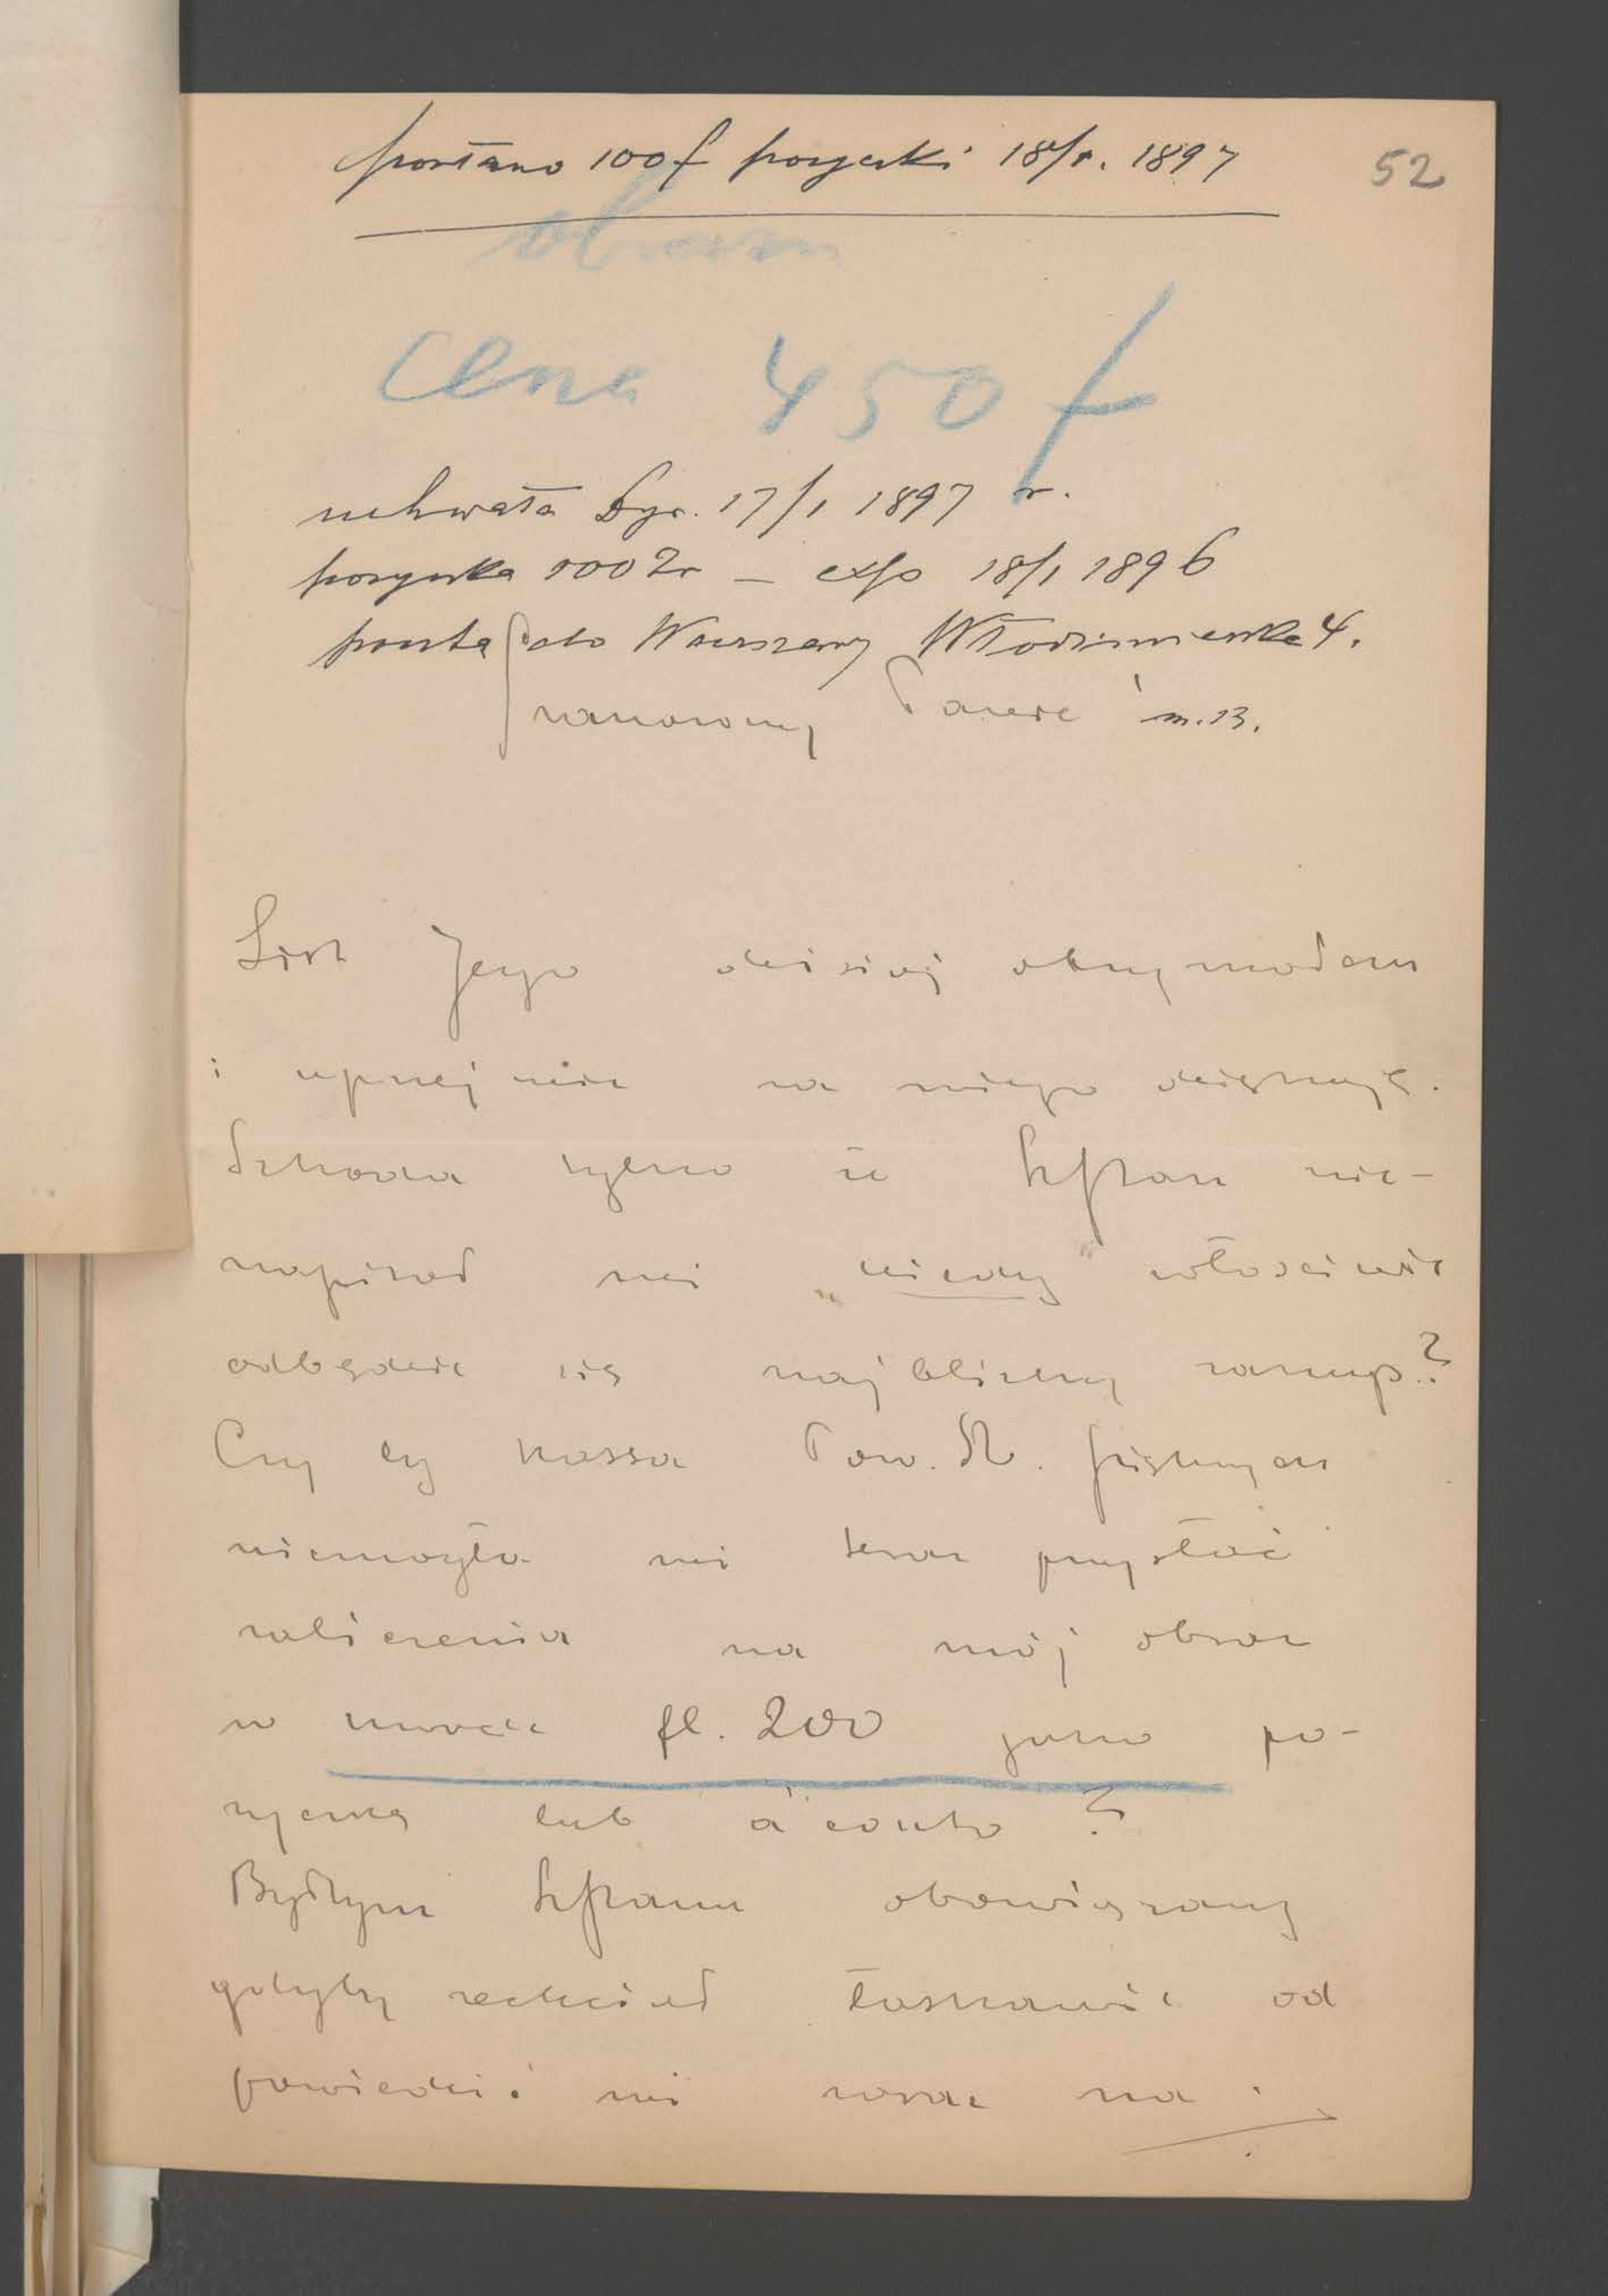 posłano 100 f pożyczki 18/1. 1897
52
obrazu
Cena 450 f
uchwała Dyr. 17/1 1897 r.
pożyczka 100 Zr – exp 18/1 1896
pocztą do Warszawy Włodzimierska 4.
m. 13.
Szanowny Panie
List Jego dzisiaj otrzymałem
i uprzejmie za niego dziękuję.
Szkoda tylko że WPan nie-
napisał mi „kiedy" właściwie
odbędzie się najbliższy zakup?
Czy by kassa Tow. Szt. pięknych
niemogła mi teraz przysłać
zaliczenia na mój obraz
w kwocie fl. 200 jako po-
życzkę lub à conto?
Byłbym WPanu obowiązany
gdyby zechciał łaskawie od
powiedzieć mi zaraz na